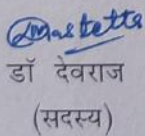 डॉ देवराज
(सदस्य)